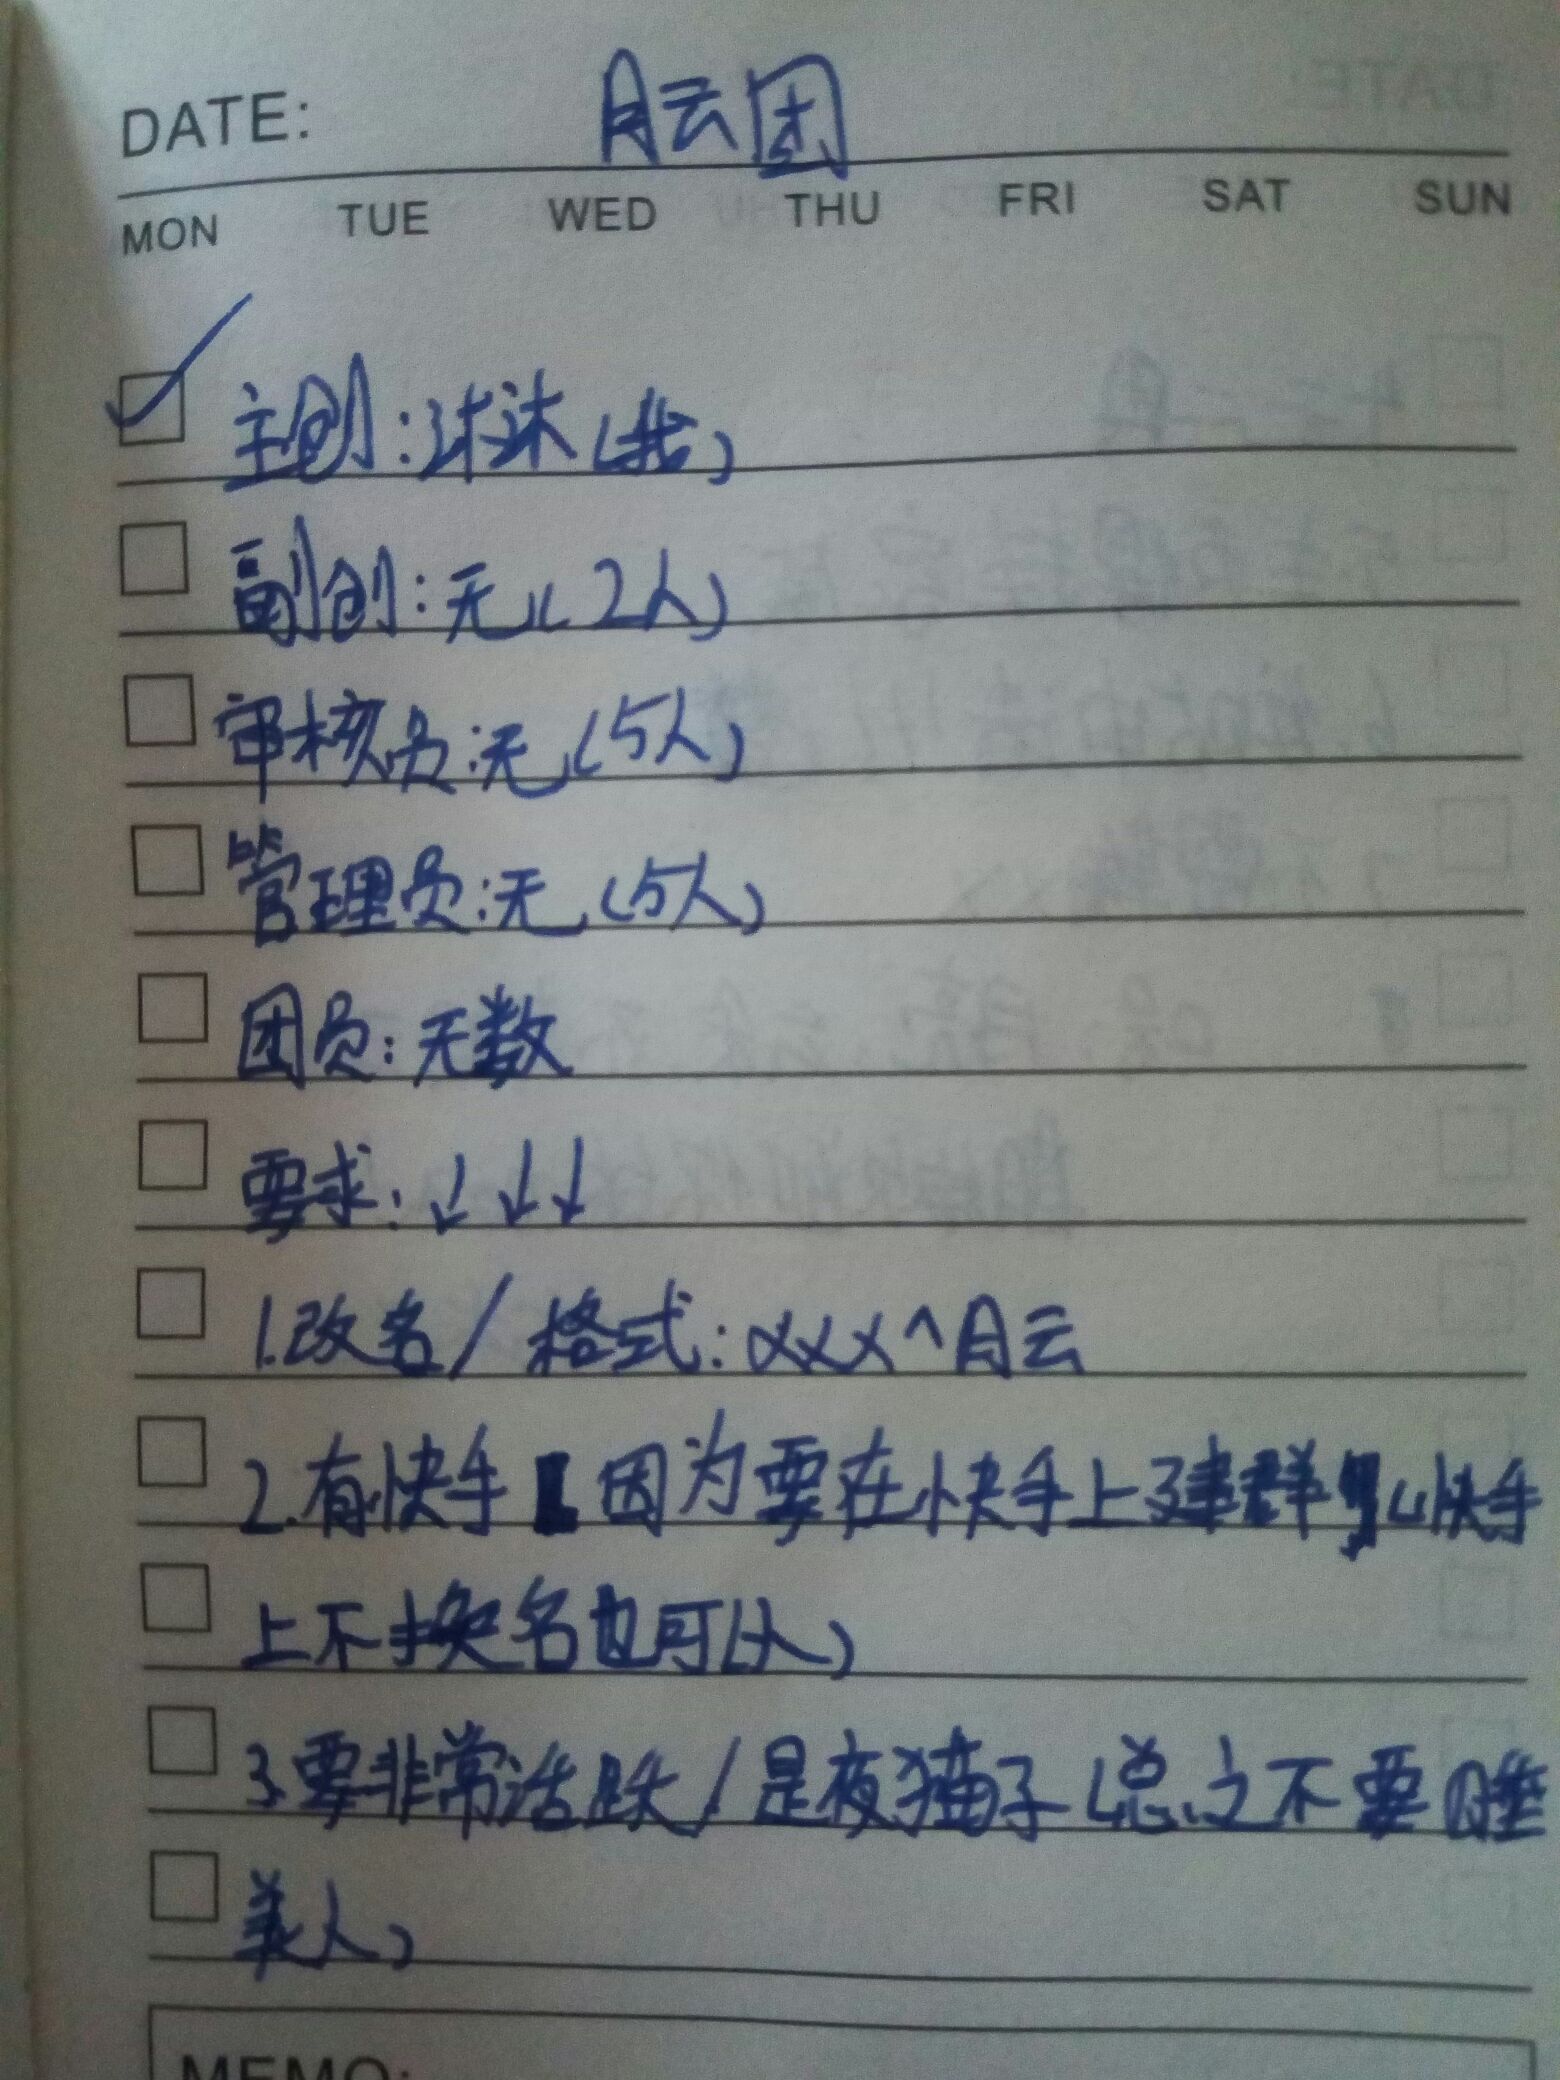 DATE: 月云团
MON TUE WED THU FRI SAT SUN
主创:沐沐(我)
副创:无(2人)
审核员:无(5人)
管理员:无(5人)
团员:无数
要求:↓↓↓
1.改名/格式:xxx^月云
2.有快手 因为要在快手上建群 (快手
上不换名也可以)
3.要非常活跃/是夜猫子(总之不要睡
美人)
MEMO: